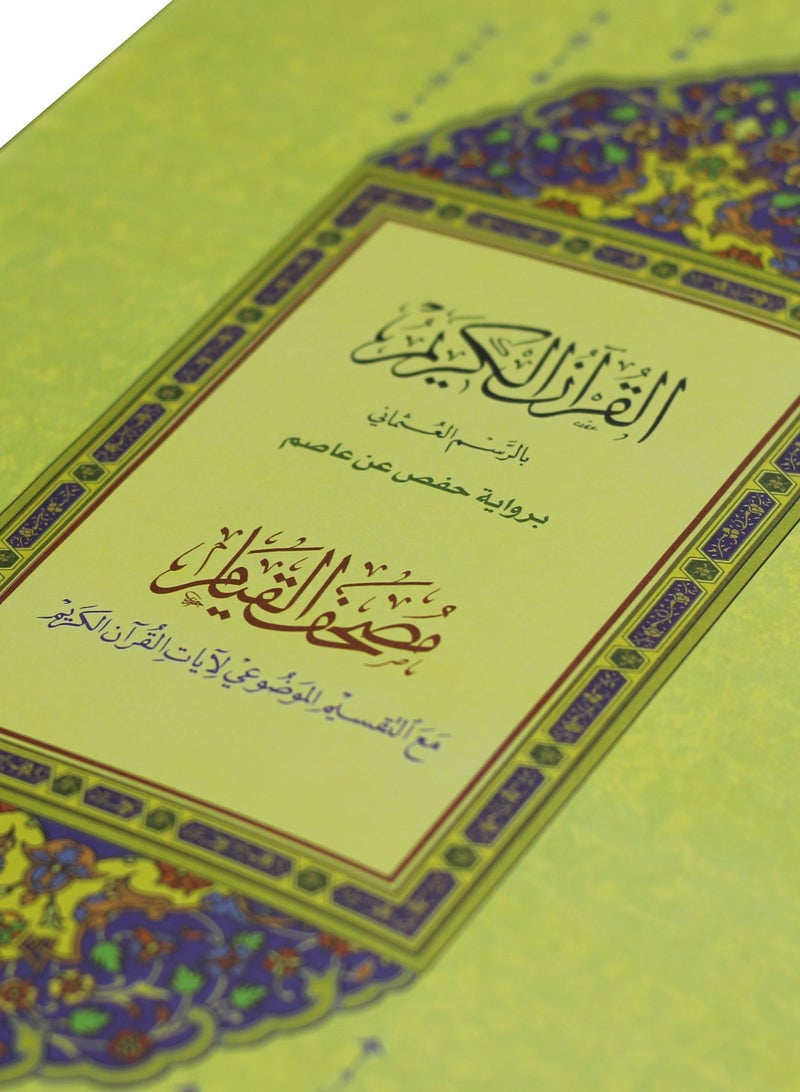 القُرآنُ الكَرِيمُ
بالرَّسْمِ العُثماني
برواية حفص عن عاصم
مُصْحَفُ القِيَام
مَعَ التقسيْمِ المَوضُوعيْ لآيَاتِ القُرآنِ الكَرِيْمْ